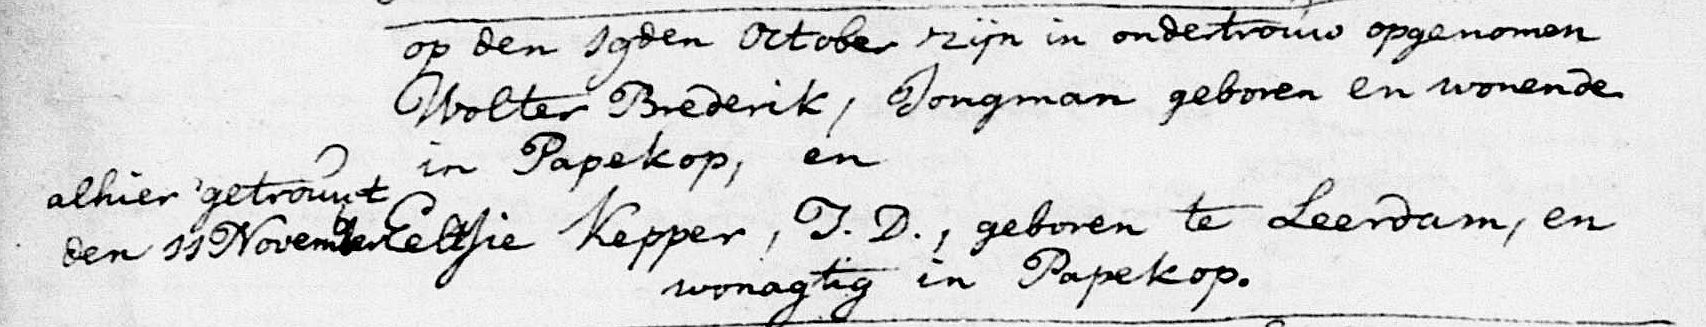 op den 19den October zijn in ondertrouw opgenomen
Wolter Brederik, Jongman geboren en wonende
in Papekop, en
alhier getrouwt
den 11 November Eeltjie Kepper, J. D., geboren te Leerdam, en
wonagtig in Papekop.